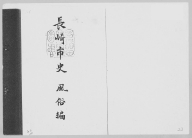 長崎市史 風俗編